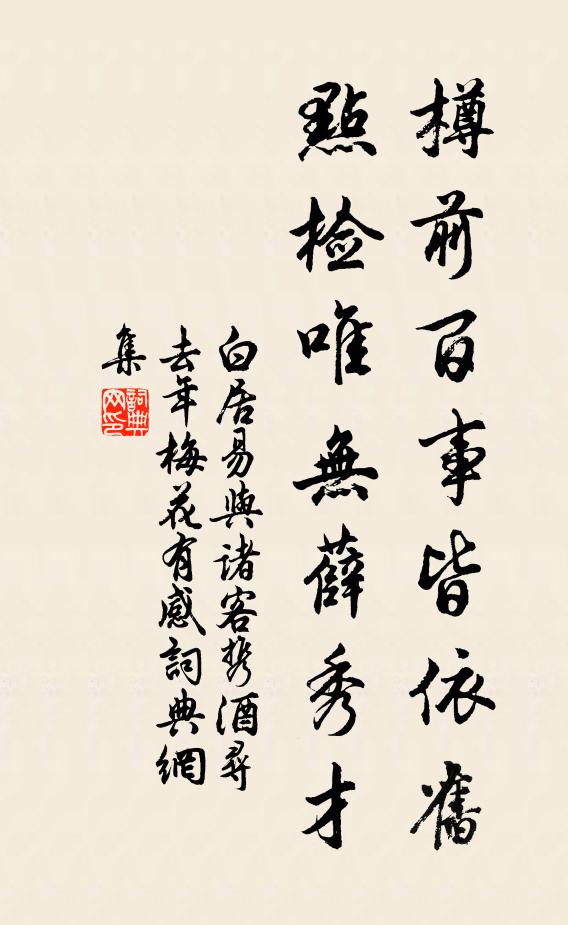 樽前百事皆依舊
點檢唯無薛秀才
白居易與諸客攜酒尋
去年梅花有感詞典網
集
詞典
网印